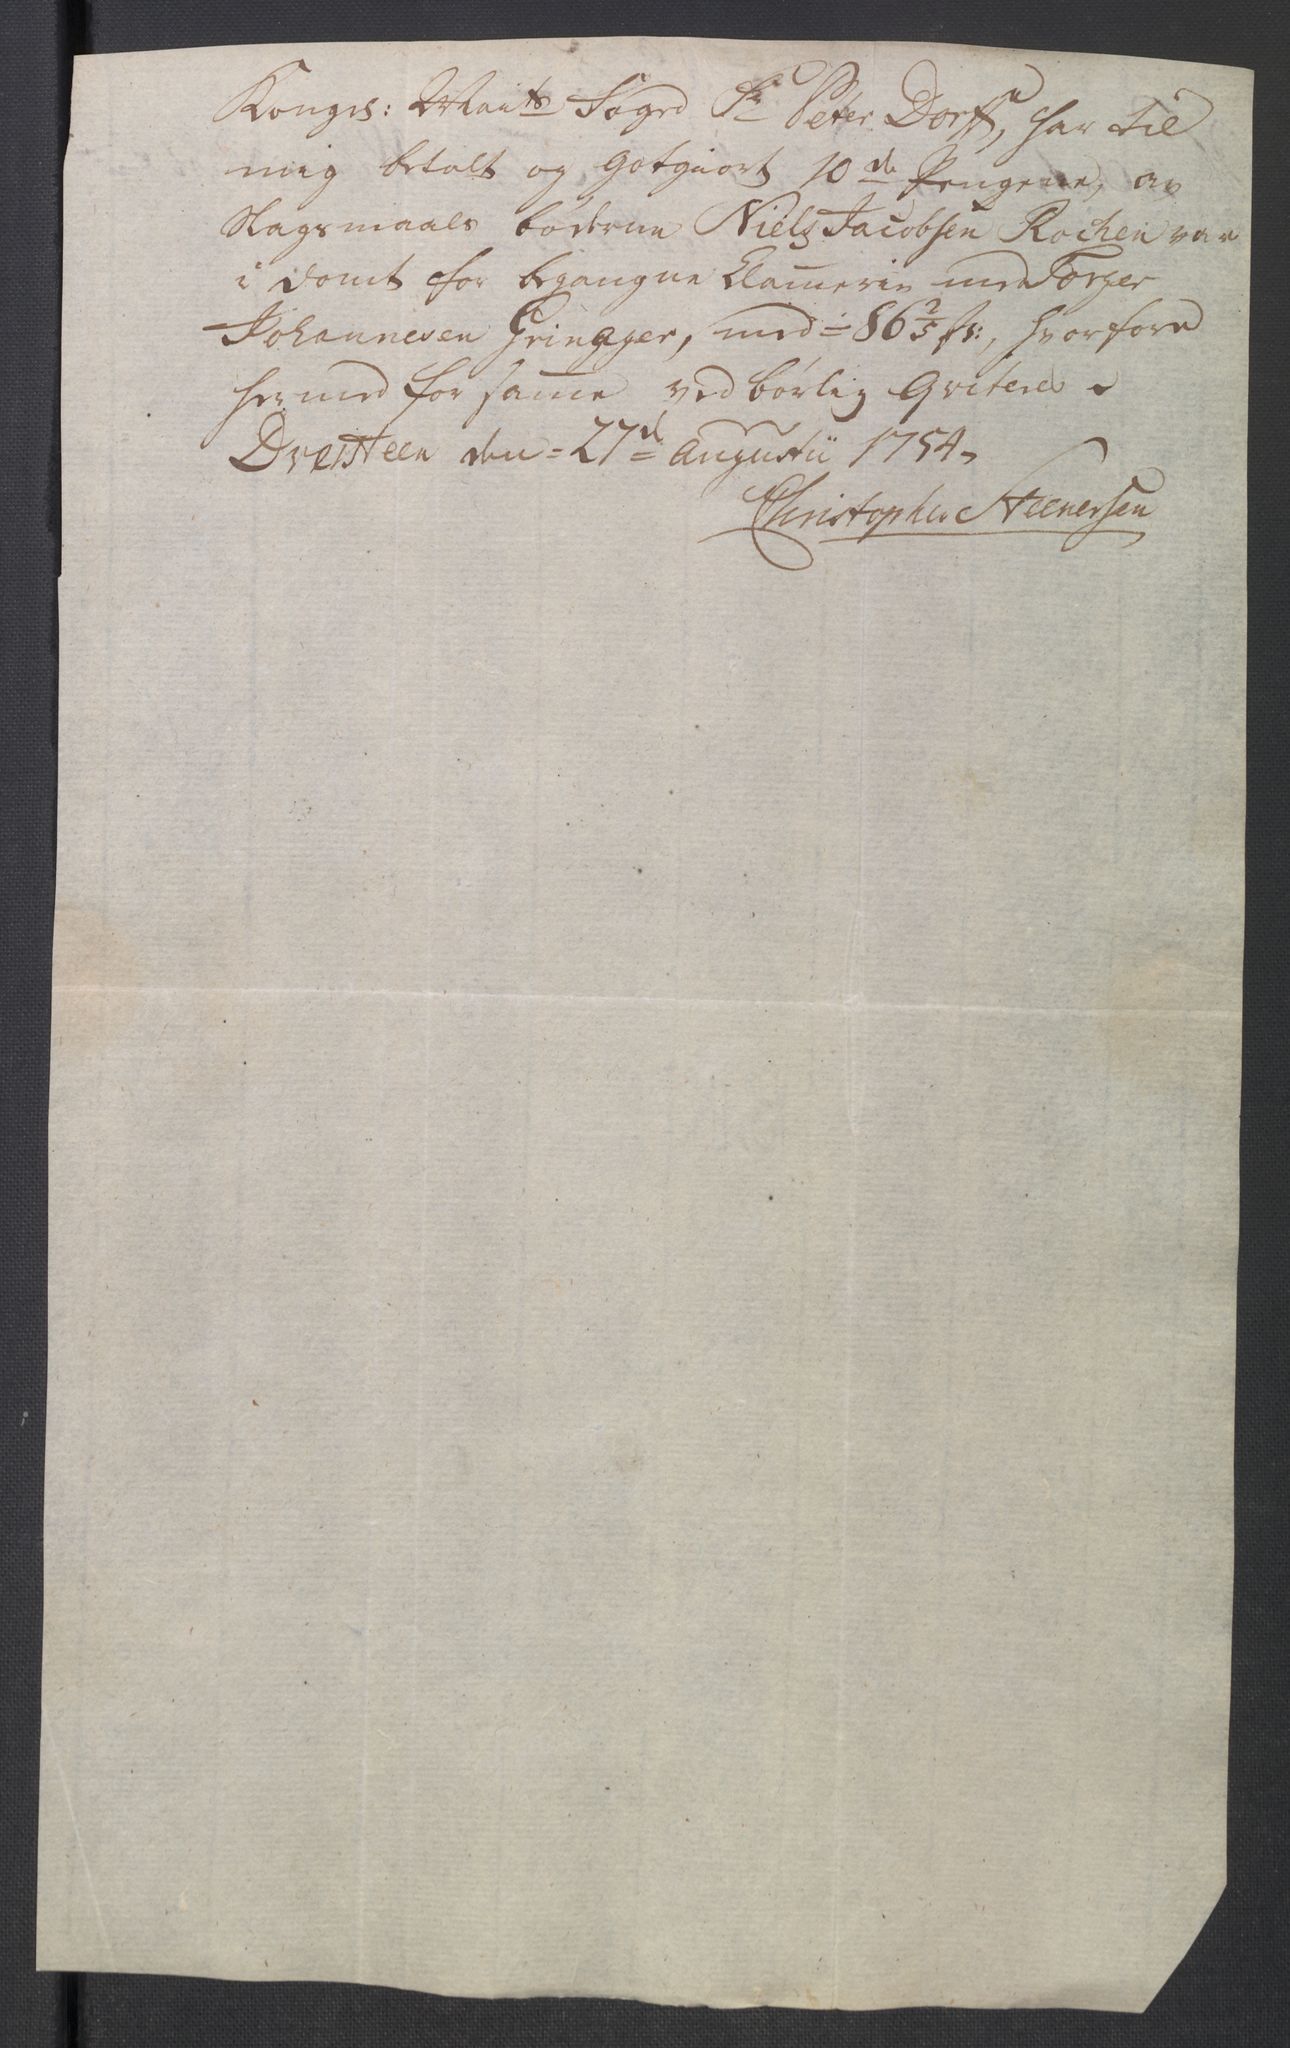 Konges: Maits Foged Sr Peter Dorff, har til
mig betalt og Gotgiort 10de Pengene, av
Slagsmaals bøderne Niels Jacobsen Rochen var
i Dömt for begangne Clamerie med Torger
Johannesen Grinager, med = 86 2/5 s:, hvorfore
hermed for same ved börlig Qvitere
Dvelsteen den = 27d = Augustii 1754,
Christopher Steenersen